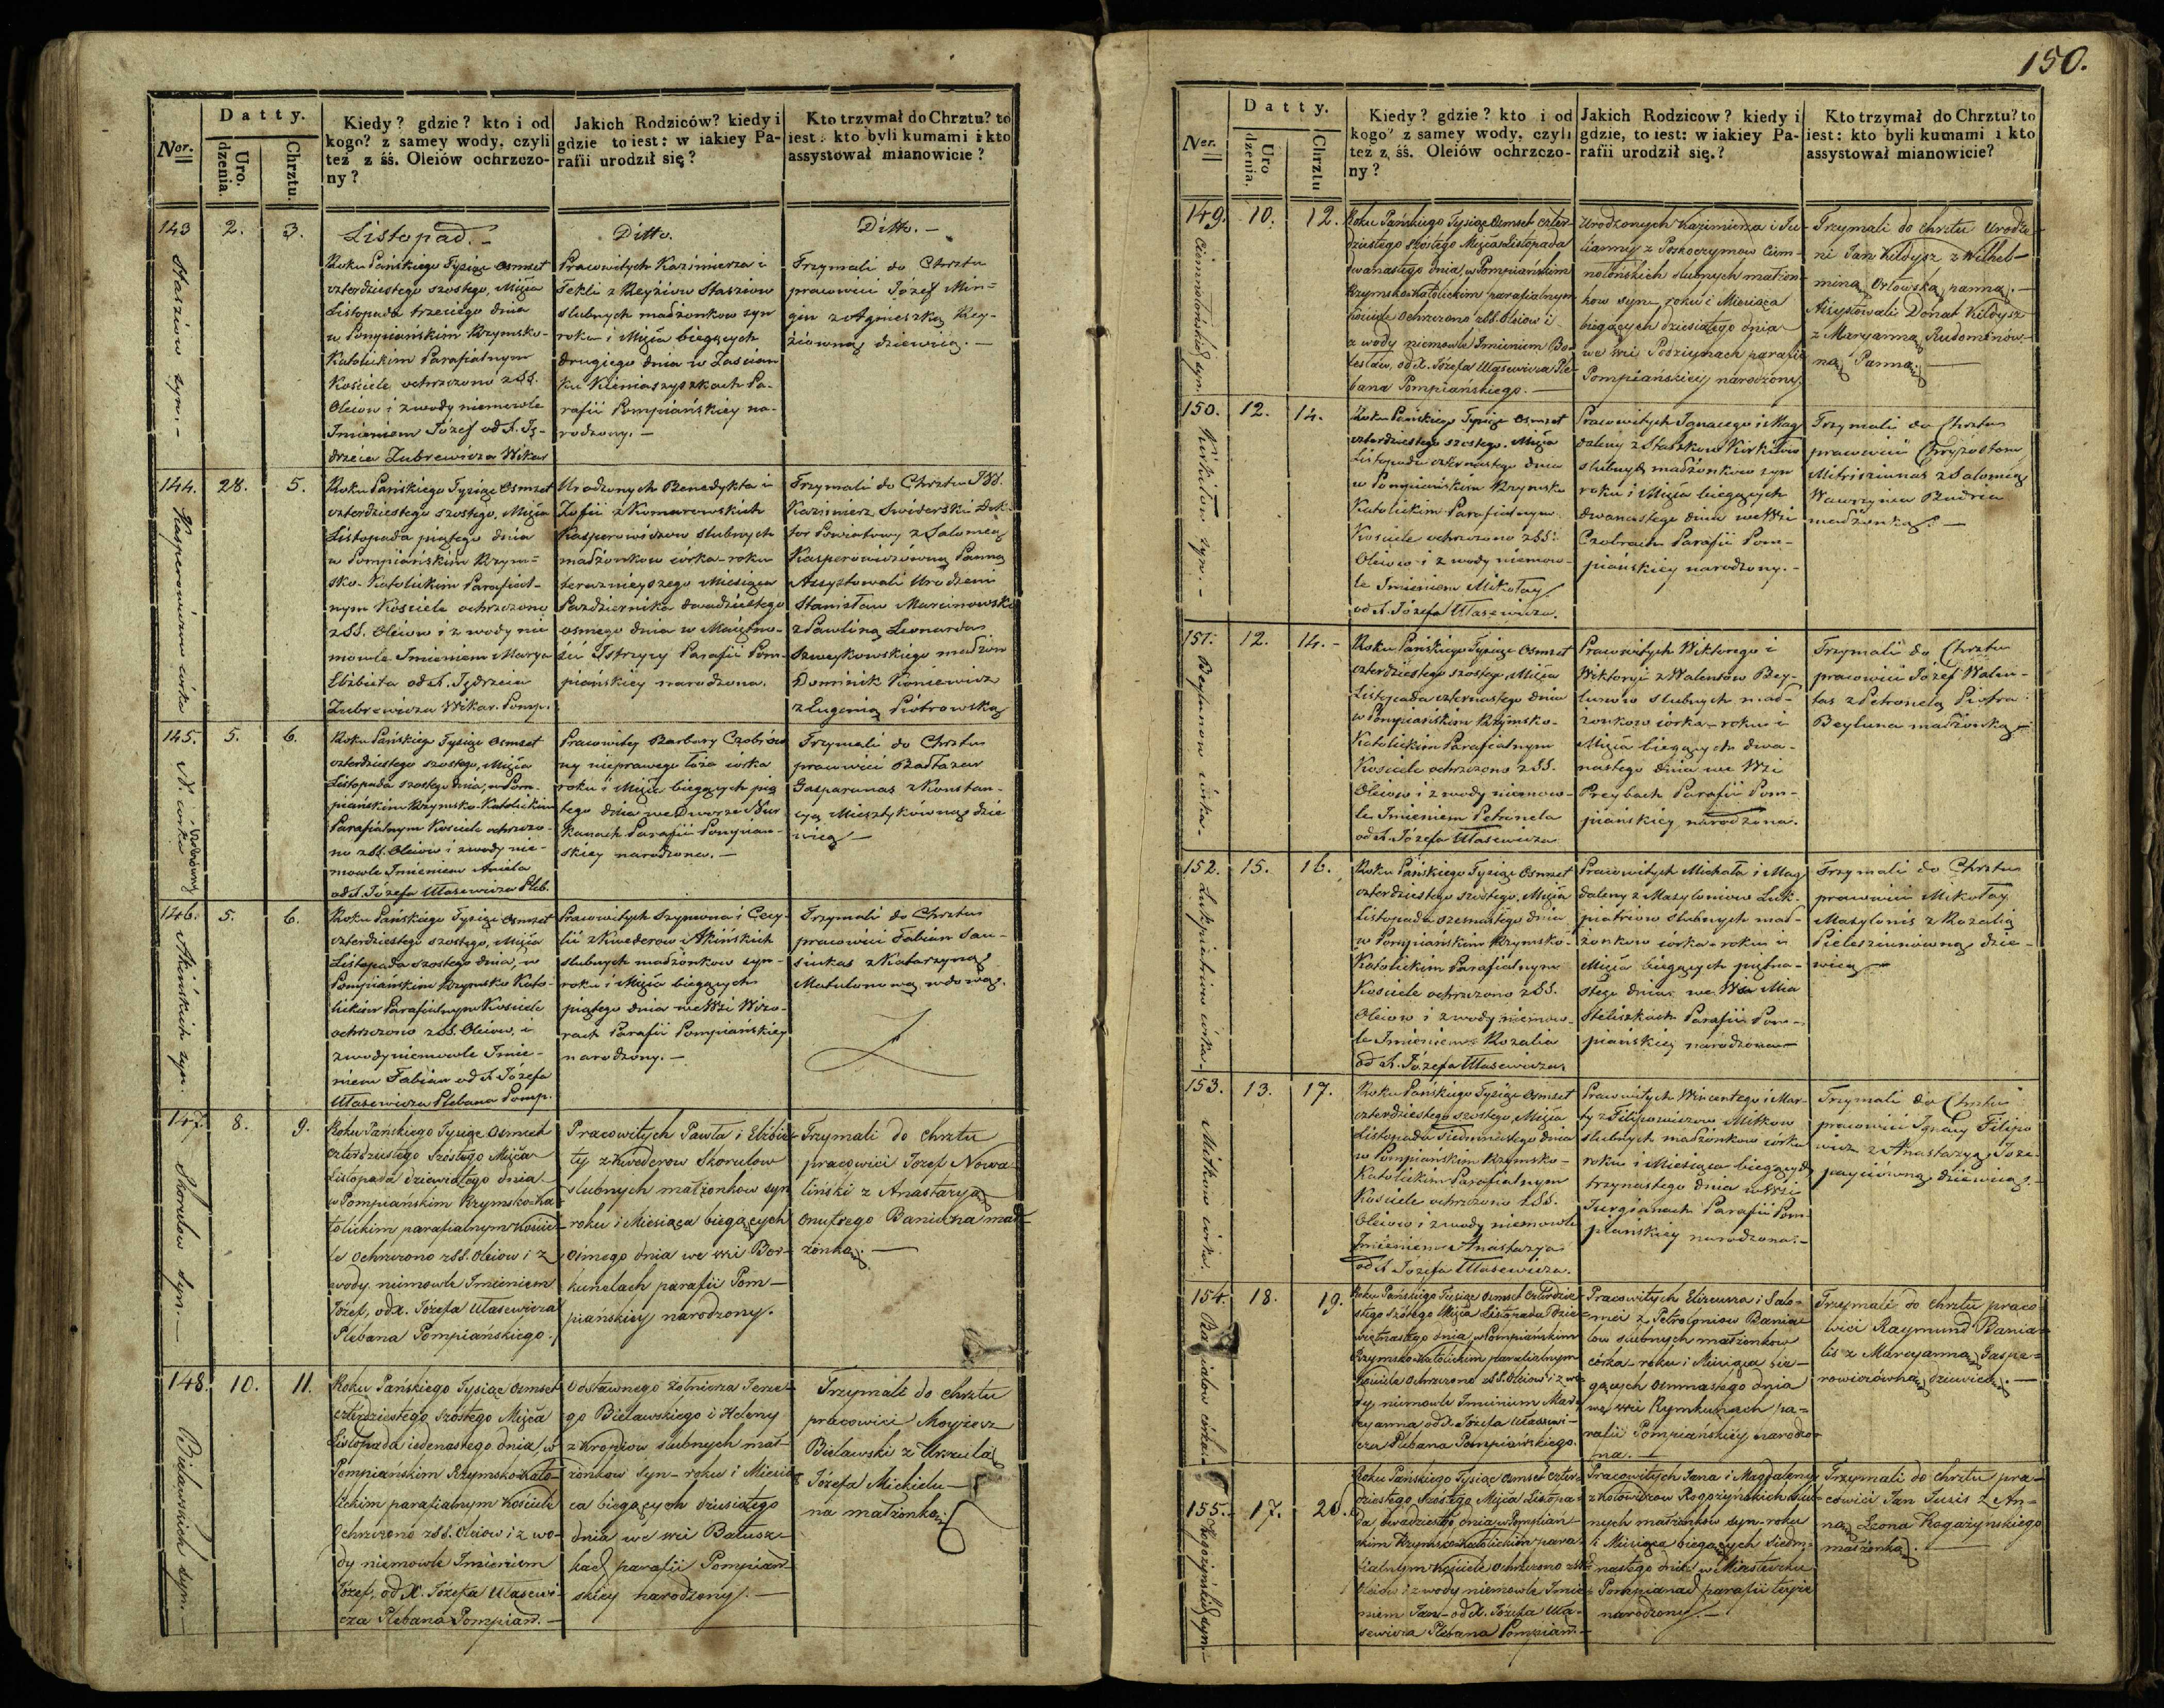 150.
Datty.
Ner.
Uro.
dzenia.
Chrztu.
Kiedy? gdzie? kto i od
kogo? z samey wody, czyli
też z śś. Oleiów ochrzczo-
ny?
Jakich Rodziców? kiedy i
gdzie to iest: w iakiey Pa-
rafii urodził się?
Kto trzymał do Chrztu? to
iest: kto byli kumami i kto
assystował mianowicie?
143
Stasziów syn. -
2.
3.
Listopad. -
Roku Pańskiego Tysiąc Osmset
czterdziestego szostego, Mięsia
Listopada trzeciego dnia
w Pompiańskim Rzymsko-
Katolickim Parafialnym
Kościele ochrzczono z SS.
Oleiow i z wody niemowle
Imieniem Józef od X. Ję-
drzeia Zubrewicza Wikar
Ditto.
Pracowitych Kazimierza i
Tekli z Reyżiow Stasziow
slubnych małżonkow syn
roku i Mięsia biegących
drugiego dnia w Zascian
ku Kieniaszyszkach Pa-
rafii Pompiańskiey na-
rodzony. -
Ditto. -
Trzymali do Chrztu
pracowici Józef Min-
gin z Agnieszką Rey-
żiówną dziewicą. -
144.
Kasperowiczow córka
28.
5.
Roku Pańskiego Tysiąc Osmset
czterdziestego szostego, Mięsia
Listopada piątego dnia
w Pompiańskim Rzym-
sko-Katolickim Parafial-
nym Kościele ochrzczono
z SS. Oleiow i z wody nie
mowle Imieniem Marya
Elżbieta od X. Jędrzeia
Zubrewicza Wikar. Pomp.
Urodzonych Benedykta i
Zofii z Komarowskich
Kasperowiczow slubnych
małżonkow córka - roku
teraznieyszego Miesiąca
Pazdziernika dwudziestego
osmego dnia w Maiętno-
sci Istrzycy Parafii Pom-
piańskiey narodzona.
Trzymali do Chrztu JWW.
Kazimierz Swiderski Dok-
tor Powiatowy z Salomeą
Kasperowiczówną Panną
Assystowali Urodzeni
Stanisław Marcinowski
z Pauliną Leonarda
Szweykowskiego małżon
Dominik Koniewicz
z Eugenią Piotrowską
145.
N. córka
5.
6.
Roku Pańskieg Tysiąc Osmset
czterdziestego szostego, Mięsia
Listopada szostego dnia, w Pom-
piańskim Rzymsko-Katolickim
Parafialnym Kościele ochrzczo-
no z SS. Oleiow i z wody nie-
mowle Imieniem Aniela
od X. Józefa Ułasewicza Pleb.
Pracowitey Barbary Czobrów
ny nieprawego łoża córka
roku i Mięsia biegących pią
tego dnia we Dworze Nur
kanach Parafii Pompian-
skiey narodzona. -
Trzymali do Chrztu
pracowici Baltazar
Gasparunas z Konstan-
cyą Miesztykówną dzie
wicą -
146.
Akińskich syn.
5.
6.
Roku Pańskiego Tysiąc Osmset
czterdziestego szostego, Mięsia
Listopada szostego dnia, w
Pompiańskim Rzymsko Kato-
lickim Parafialnym Kościele
ochrzczono z SS. Oleiow, i
z wody niemowle Imie-
niem Fabian od X. Józefa
Ułasewicza Plebana Pomp.
Pracowitych Szymona i Cecy-
lii z Kwederow Akińskich
slubnych małżonkow syn-
roku i Mięsia biegących
piątego dnia we Wsi Wizo-
rach Parafii Pompiańskiey
narodzony. -
Trzymali do Chrztu
pracowici Fabian Sau-
siukas z Katarzyną
Matulonową wdową.
147.
Skorulow syn. -
8.
9.
Roku Pańskiego Tysiąc Osmset
czterdziestego Szóstego Mięsca
Listopada dziewiątego dnia
w Pompiańskim Rzymsko-Ka
tolickim parafialnym Koście-
le Ochrzczono z SS. Oleiow i z
wody niemowle Imieniem
Józef, od X. Józefa Ułasewicza
Plebana Pompiańskiego.
Pracowitych Pawła i Elżbie
ty z Kwederow Skorulow
slubnych małżonkow syn
roku i Miesiąca biegących
Osmego dnia we wsi Bor-
kunolach parafii Pom-
piańskiey narodzony.
Trzymali do chrztu
pracowici Jozef Nowa
liński z Anastazyą
Onufrego Baniewna mał-
żonką. -
148.
Bielawskich syn. -
10.
11.
Roku Pańskiego Tysiąc Osmset
czterdziestego szóstego Mięsca
Listopada iedenastego dnia w
Pompiańskim Rzymsko-Kato-
lickim parafialnym Kościele
Ochrzczono z SS. Oleiow i z wo-
dy niemowle Imieniem
Józef, od X. Józefa Ułasewi-
cza Plebana Pompiań. -
Odstawnego żołnierza Jerze-
go Bielawskiego i Heleny
z Kropiow slubnych mał-
żonkow syn - roku i Miesią
ca biegących dziesiątego
dnia we wsi Bałusz-
kach parafii Pompiań-
skiey narodzony. -
Trzymali do chrztu
pracowici Moyżesz
Bielawski z Urszulą
Józefa Mickielu-
na małżonką.
Datty.
Ner.
Uro
dzenia.
Chrztu
Kiedy? gdzie? kto i od
kogo? z samey wody, czyli
też z śś. Oleiów ochrzczo-
ny?
Jakich Rodzicow? kiedy i
gdzie, to iest: w iakiey Pa-
rafii urodził się.?
Kto trzymał do Chrztu? to
iest: kto byli kumami i kto
assystował mianowicie?
149.
Ciemnołonskich syn.
10.
12.
Roku Pańskiego Tysiąc Osmset czter-
dziestego szóstego Mięsca Listopada
dwanastego dnia, w Pompiańskim
Rzymsko-Katolickim parafialnym
Kościele Ochrzczono z SS. Oleiow i
z wody niemowle Imieniem Bo-
lesław, od X. Józefa Ułasewicza Ple-
bana Pompiańskiego. -
Urodzonych Kazimierza i Ju-
lianny z Poskoczymow Ciem-
nołońskich slubnych małżon-
kow syn - roku i Miesiąca
biegących dziesiątego dnia
we wsi Podziynach parafii
Pompiańskiey narodzony.
Trzymali do chrztu Urodze-
ni Jan Kildysz z Wilhel-
miną Orłowską panną. -
Assystowali Donat Kildysz
z Maryanną Rudominów-
ną Panną. -
150.
Kirkiłow syn. -
12.
14.
Roku Pańskiego Tysiąc Osmset
czterdziestego szostego, Mięsia
Listopada czternastego dnia
w Pompiańskim Rzymsko
Katolickim Parafialnym
Kościele ochrzczono z SS.
Oleiow i z wody niemow-
le Imieniem Mikołay
od X. Józefa Ułasewicza.
Pracowitych Ignacego i Mag
daleny z Staszkow Kirkiłow
slubnych małżonkow syn
roku i Mięsia biegących
dwanastego dnia we Wsi
Czobrach Parafii Pom-
piańskiey narodzony. -
Trzymali do Chrztu
pracowici Chryzostom
Mitrisziunas z Salomeą
Wawrzynca Budrea
małżonką. -
151.
Beylunow córka -
12.
14. -
Roku Pańskiego Tysiąc Osmset
czterdziestego szostego, Mięsia
Listopada czternastego dnia
w Pompiańskim Rzymsko-
Katolickim Parafialnym
Kościele ochrzczono z SS.
Oleiow i z wody niemow-
le Imieniem Petronela
od X. Józefa Ułasewicza
Pracowitych Wiktorego i
Wiktoryi z Walentow Bey-
lunow slubnych mał-
żonkow córka - roku i
Mięsia biegących dwa-
nastego dnia we Wsi
Preybach Parafii Pom-
piańskiey narodzona.
Trzymali do Chrztu
pracowici Józef Walen-
tas z Petronelą Piotra
Beyluna małżonką -
152.
Lukpiatriow córka -
15.
16.
Roku Pańskiego Tysiąc Osmset
czterdziestego szostego, Mięsia
Listopada szesnastego dnia
w Pompiańskim Rzymsko-
Katolickim Parafialnym
Kościele ochrzczono z SS.
Oleiow i z wody niemow-
le Imieniem Rozalia
od X. Józefa Ułasewicza
Pracowitych Michała i Mag
daleny z Mazyloniow Luk-
piatriow slubnych mał-
żonkow córka - roku i
Mięsia biegących piętna-
stego dnia we Wsi Mia
steliszkach Parafii Pom-
piańskiey narodzona -
Trzymali do Chrztu
pracowici Mikołay
Mazylonis z Rozalią
Pieleszunówną dzie-
wicą -
153.
Mitkow córka.
13.
17.
Roku Pańskiego Tysiąc Osmset
czterdziestego szostego, Mięsia
Listopada siedmnastego dnia
w Pompiańskim Rzymsko-
Katolickim Parafialnym
Kościele ochrzczono z SS.
Oleiow i z wody niemowle
Imieniem Anastazya
od X. Józefa Ułasewicza.
Pracowitych Wincentego i Mar-
ty z Filipowiczow Mitkow
slubnych małżonkow córka
roku i Miesiąca biegących
trzynastego dnia w Wsi
Jurgianach Parafii Pom-
piańskiey narodzona. -
Trzymali do Chrztu
pracowici Ignacy Filipo
wicz z Anastazyą Joze-
payciówną dziewicą. -
154.
18.
19.
Roku Pańskiego Tysiąc Osmset czterdzie
stego szóstego Mięsca Listopada dzie-
więtnastego dnia, w Pompiańskim
Rzymsko-Katolickim parafialnym
Kościele Ochrzczono z SS. Oleiow i z wo
dy niemowle Imieniem Mar-
cyanna od X. Józefa Ułasewi-
cza Plebana Pompiańskiego.
Pracowitych Elizeusza i Salo-
mei z Petrolgniow Bania-
low slubnych małżonkow
córka - roku i Miesiąca bie-
gących Osmnastego dnia
we wsi Rymkunach pa-
rafii Pompiańskiey narodzo
na. -
Trzymali do chrztu praco
wici Raymund Bania-
lis z Marcyanną Gaspe-
rowiczówną dziewicą. -
155.
Rogożyńskich syn. -
17.
20.
Roku Pańskiego Tysiąc Osmset czter-
dziestego szóstego Mięsca Listopa-
da dwudziestego dnia, w Pompiań-
skim Rzymsko-Katolickim para-
fialnym Kościele Ochrzczono z SS.
Oleiow i z wody niemowle Imie-
niem Jan - od X. Józefa Uła-
sewicza Plebana Pompiań. -
Pracowitych Jana i Magdaleny
z Kołowiczow Rogożyńskich slub
nych małżonkow syn - roku
i Miesiąca biegących siedm-
nastego dnia w Miasteczku
Pompianach parafii teyże
narodzony. -
Trzymali do chrztu pra-
cowici Jan Jusis z An-
ną Leona Rogożyńskiego
małżonką. -